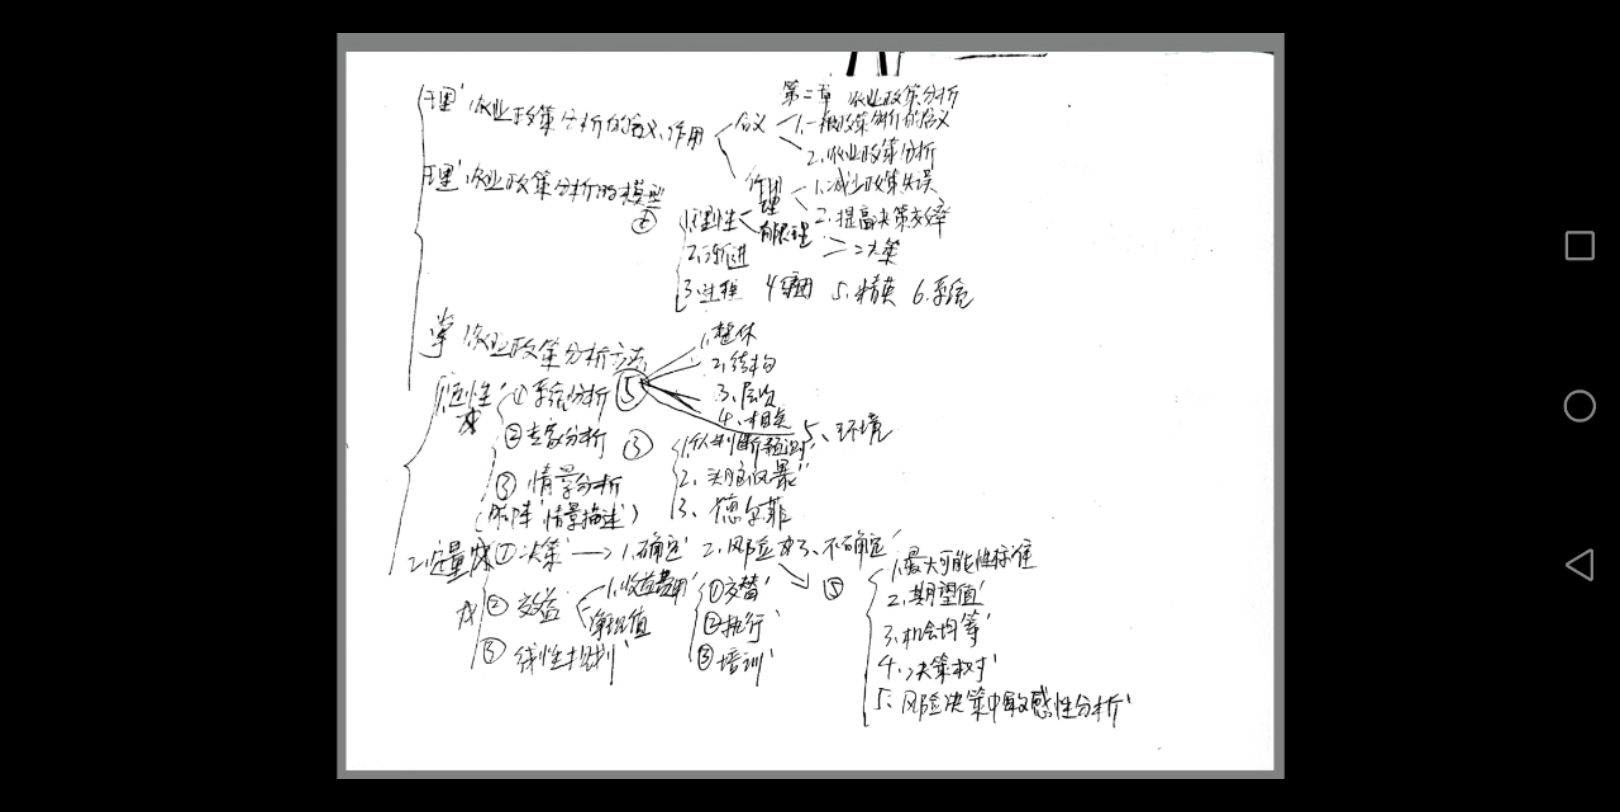 第二章 农业政策分析
理 农业政策分析的含义、作用
含义
1.一般政策分析的含义
2.农业政策分析
作用
1.减少政策失误
2.提高决策效率
理 农业政策分析的模型
1.理性
理
有限理
=决策
2.渐进
3.过程 4. 5.精英 6.系统
掌 农业政策分析方法
1.整体
2.结构
3.层次
4.相关
5、环境
1.定性
①系统分析 ⑤
②专家分析 ③
1.个人判断预测
2.头脑风暴
3.德尔菲
③情景分析
(情景描述)
2.定量
①决策 → 1.确定 2.风险 3、不确定
⑤
1.最大可能性标准
2.期望值
3.机会均等
4.决策树
5.风险决策中敏感性分析
②效益
1.收益费用
净现值
①交替
②执行
③培训
③线性规划